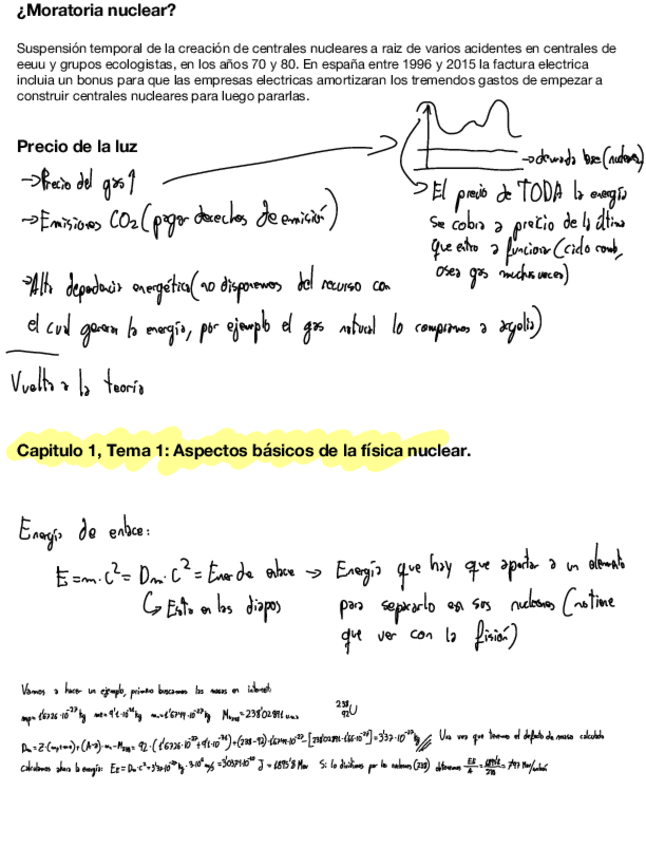 ¿Moratoria nuclear?
Suspensión temporal de la creación de centrales nucleares a raiz de varios acidentes en centrales de
eeuu y grupos ecologistas, en los años 70 y 80. En españa entre 1996 y 2015 la factura electrica
incluia un bonus para que las empresas electricas amortizaran los tremendos gastos de empezar a
construir centrales nucleares para luego pararlas.
Precio de la luz
→Precio del gas↑
→Emisiones CO2 (pagar derechos de emisión)
→demanda base (nuclear)
→El precio de TODA la energía
se cobra a precio de la última
que entro a funcionar (ciclo comb,
osea gas muchas veces)
→Alta dependencia energética (no disponemos del recurso con
el cual generan la energía, por ejemplo el gas natural lo compramos a argelia)
Vuelta a la teoría
Capitulo 1, Tema 1: Aspectos básicos de la física nuclear.
Energía de enlace:
E=m·c²= Dm·C²= Ener de enlace → Energía que hay que aportar a un elemento
↳ Esta en las diapos
para separarlo en sus nucleones (no tiene
que ver con la fisión)
Vamos a hacer un ejemplo, primero buscamos las masas en internet
238 92 U
Una vez que tenemos el defecto de masa calculado
calculamos ahora la energía:
Si lo dividimos por los nucleones (238) obtenemos